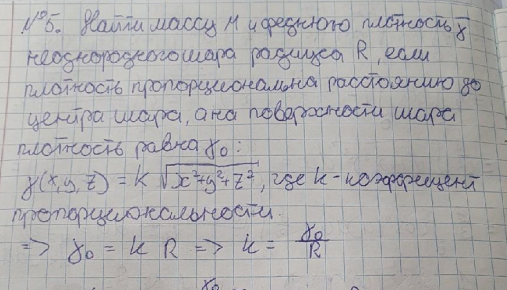 №5. Найти массу М и среднюю плотность γ̄
неоднородного шара радиуса R, если
плотность пропорциональна расстоянию до
центра шара, а на поверхности шара
плотность равна γ₀:
γ(x,y,z) = k √(x²+y²+z²), где k - коэффициент
пропорциональности.
=> γ₀ = k R => k = γ₀/R
γ₀